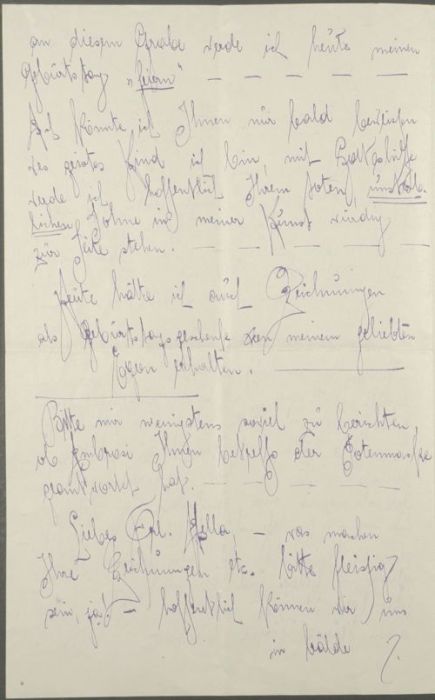 an diesem Grabe werde ich heute meinen
Geburtstag „feiern" — — — — —
Ach könnte ich Ihnen nur bald beweisen
wes Kind ich bin, mit Gottes Hilfe
werde ich hoffentlich Ihrem toten
Sohne in meiner Kunst würdig
zur Seite stehen. — — — — —
Heute hätte ich auch Zeichnungen
als Geburtstagsgeschenk von meinem geliebten
Egon erhalten. —
Bitte mir wenigstens soviel zu berichten,
ob Ambrosi Ihnen betreffs der Totenmaske
geantwortet hat. — — — —
Liebes Frl. Mella, — was machen
Ihre Zeichnungen etc. bitte fleissig
sein, ja? — hoffentlich können wir uns
in bälde